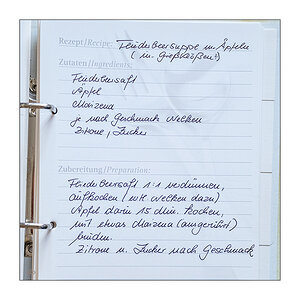 Rezept/Recipe: Fliederbeersuppe m. Äpfeln
(m. Grießklößen!)
Zutaten/Ingredients:
Fliederbeersaft
Äpfel
Maizena
je nach Geschmack Nelken
Zitrone, Zucker
Zubereitung/Preparation:
Fliederbeersaft 1:1 verdünnen,
aufkochen (mit Nelken dazu)
Äpfel darin 15 Min. kochen,
mit etwas Maizena (angerührt)
binden.
Zitrone u. Zucker nach Geschmack